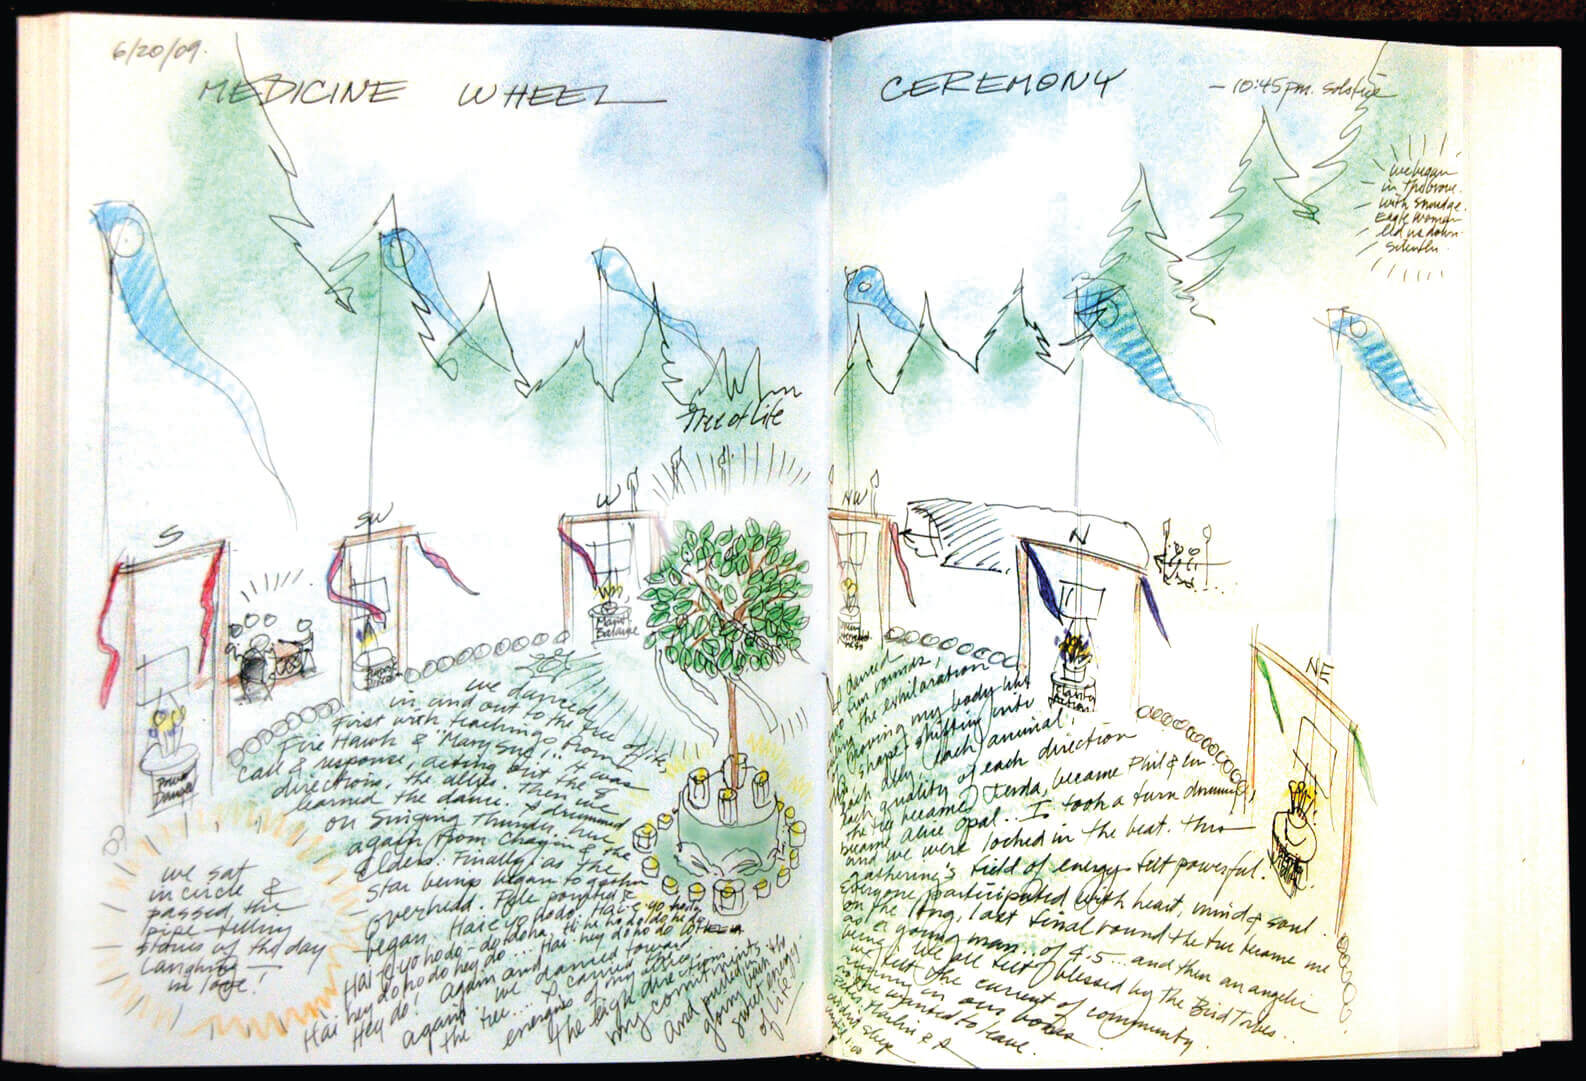 6/20/09.
MEDICINE WHEEL CEREMONY
- 10:45 pm. Solstice
we began
in the Grove.
with smudge.
Eagle Woman
led us down
silently.
Tree of Life
S
SW
W
NW
N
NE
Power
Dance
Major
Balance
we danced
in and out to the tree of life,
First with teachings from
Fire Hawk & "Mary Sue!".. it was
call & response, acting out the 8
directions, the allies. Then we
learned the dance. I drummed
on Singing Thunder. hrw
again from Chayin & the
Elders. Finally, as the
star beings began to gather
overhead. Kyle pointed &
began. Hai e yo hodo. Hai-e yo hodo
Hai e yo hodo-do doha. Hi he ho do ho he do
Hai hey do ho do hey do... Hai-hey do ho do
Hey do! Again and
again we danced toward
the tree... I carried the
energies of my allies,
the eight directions...
my commitments
and pulled
going back with
sweet energy
of life!
we sat
in circle &
passed the
pipe - telling
stories of the day
Laughing —
in love!
danced
two fun rounds,
the exhilaration
moving my body has
shape-shifting into
each ally. each animal!
each quality of each direction
the tree became Jenda, became Phil &
became Alice Opal.. I took a turn drumming,
and we were locked in the beat. This
gathering's field of energy felt powerful.
Everyone participated with heart, mind & soul.
on the long, last final round the tree became me
as a young man... of 4.5... and then an angelic
being! We all felt blessed by the Bird Tribes..
we felt the current of community
running in our bodies.
no one wanted to leave.
Marlin & I